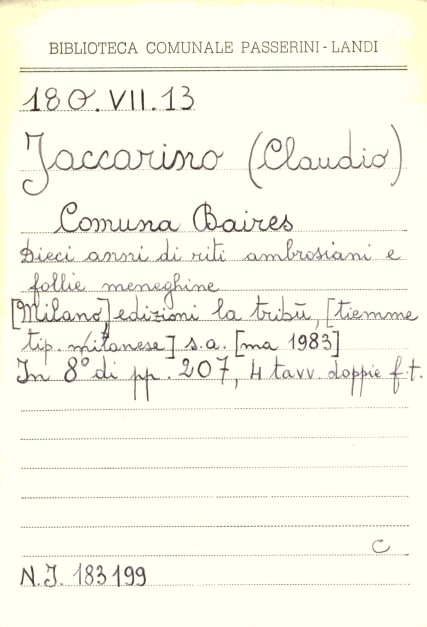 BIBLIOTECA COMUNALE PASSERINI-LANDI
180.VII.13
Jaccarino (Claudio)
Comuna Baires
Dieci anni di riti ambrosiani e
follie meneghine
[Milano] edizioni la tribù, [tiemme
tip. milanese] s.a. [ma 1983]
In 8° di pp. 207, 4 tavv. doppie f.t.
C
N.I. 183199